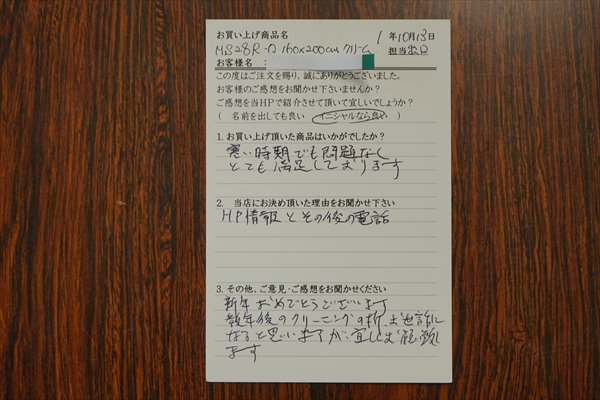 お買い上げ商品名
1 年10月13日
MS28R-D 160×200cm クリーム
担当
お客様名 :
この度はご注文を賜り、誠にありがとうございました。
お客様のご感想をお聞かせ下さいませんか?
ご感想を当HPで紹介させて頂いて宜しいでしょうか?
( 名前を出しても良い イニシャルなら良い )
1. お買い上げ頂いた商品はいかがでしたか?
寒い時期でも問題なく
とても満足しております
2. 当店にお決め頂いた理由をお聞かせ下さい
HP情報とその後の電話
3. その他、ご意見・ご感想をお聞かせください
新年おめでとうございます
数年後のクリーニングの折、お世話に
なると思いますが、宜しくお願い致し
ます